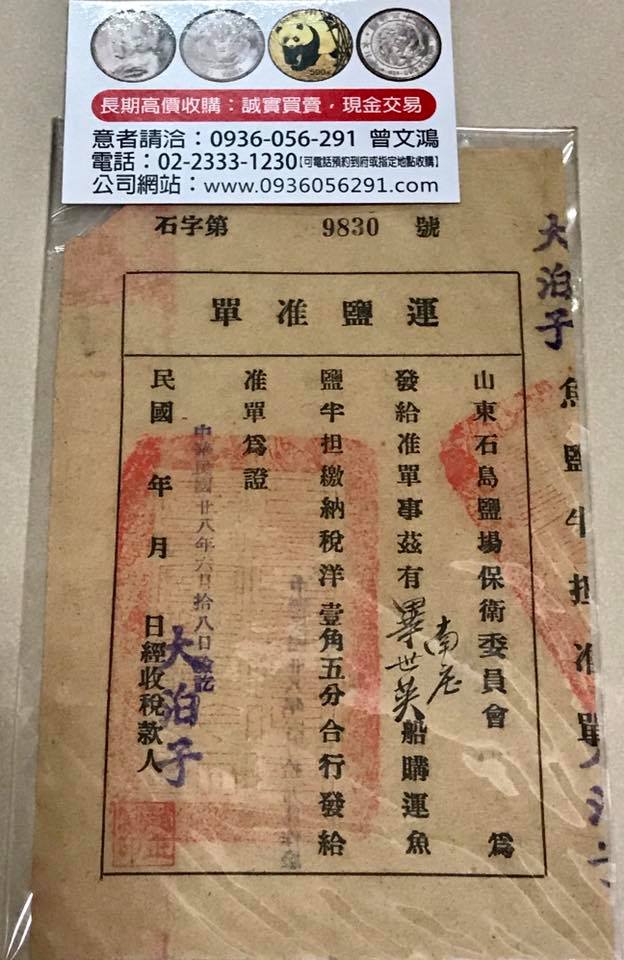 長期高價收購：誠實買賣，現金交易
意者請洽：0936-056-291 曾文鴻
電話：02-2333-1230【可電話預約到府或指定地點收購】
公司網站：www.0936056291.com
石字第 9830 號
運鹽准單
山東石島鹽場保衛委員會 為
發給准單事茲有南 畢世英船購運魚
鹽半担繳納稅洋壹角五分合行發給
准單為證
中華民國廿八年六月拾八日驗訖
民國 年 月 日經收稅款人
大泊子
大泊子
魚鹽半担准單